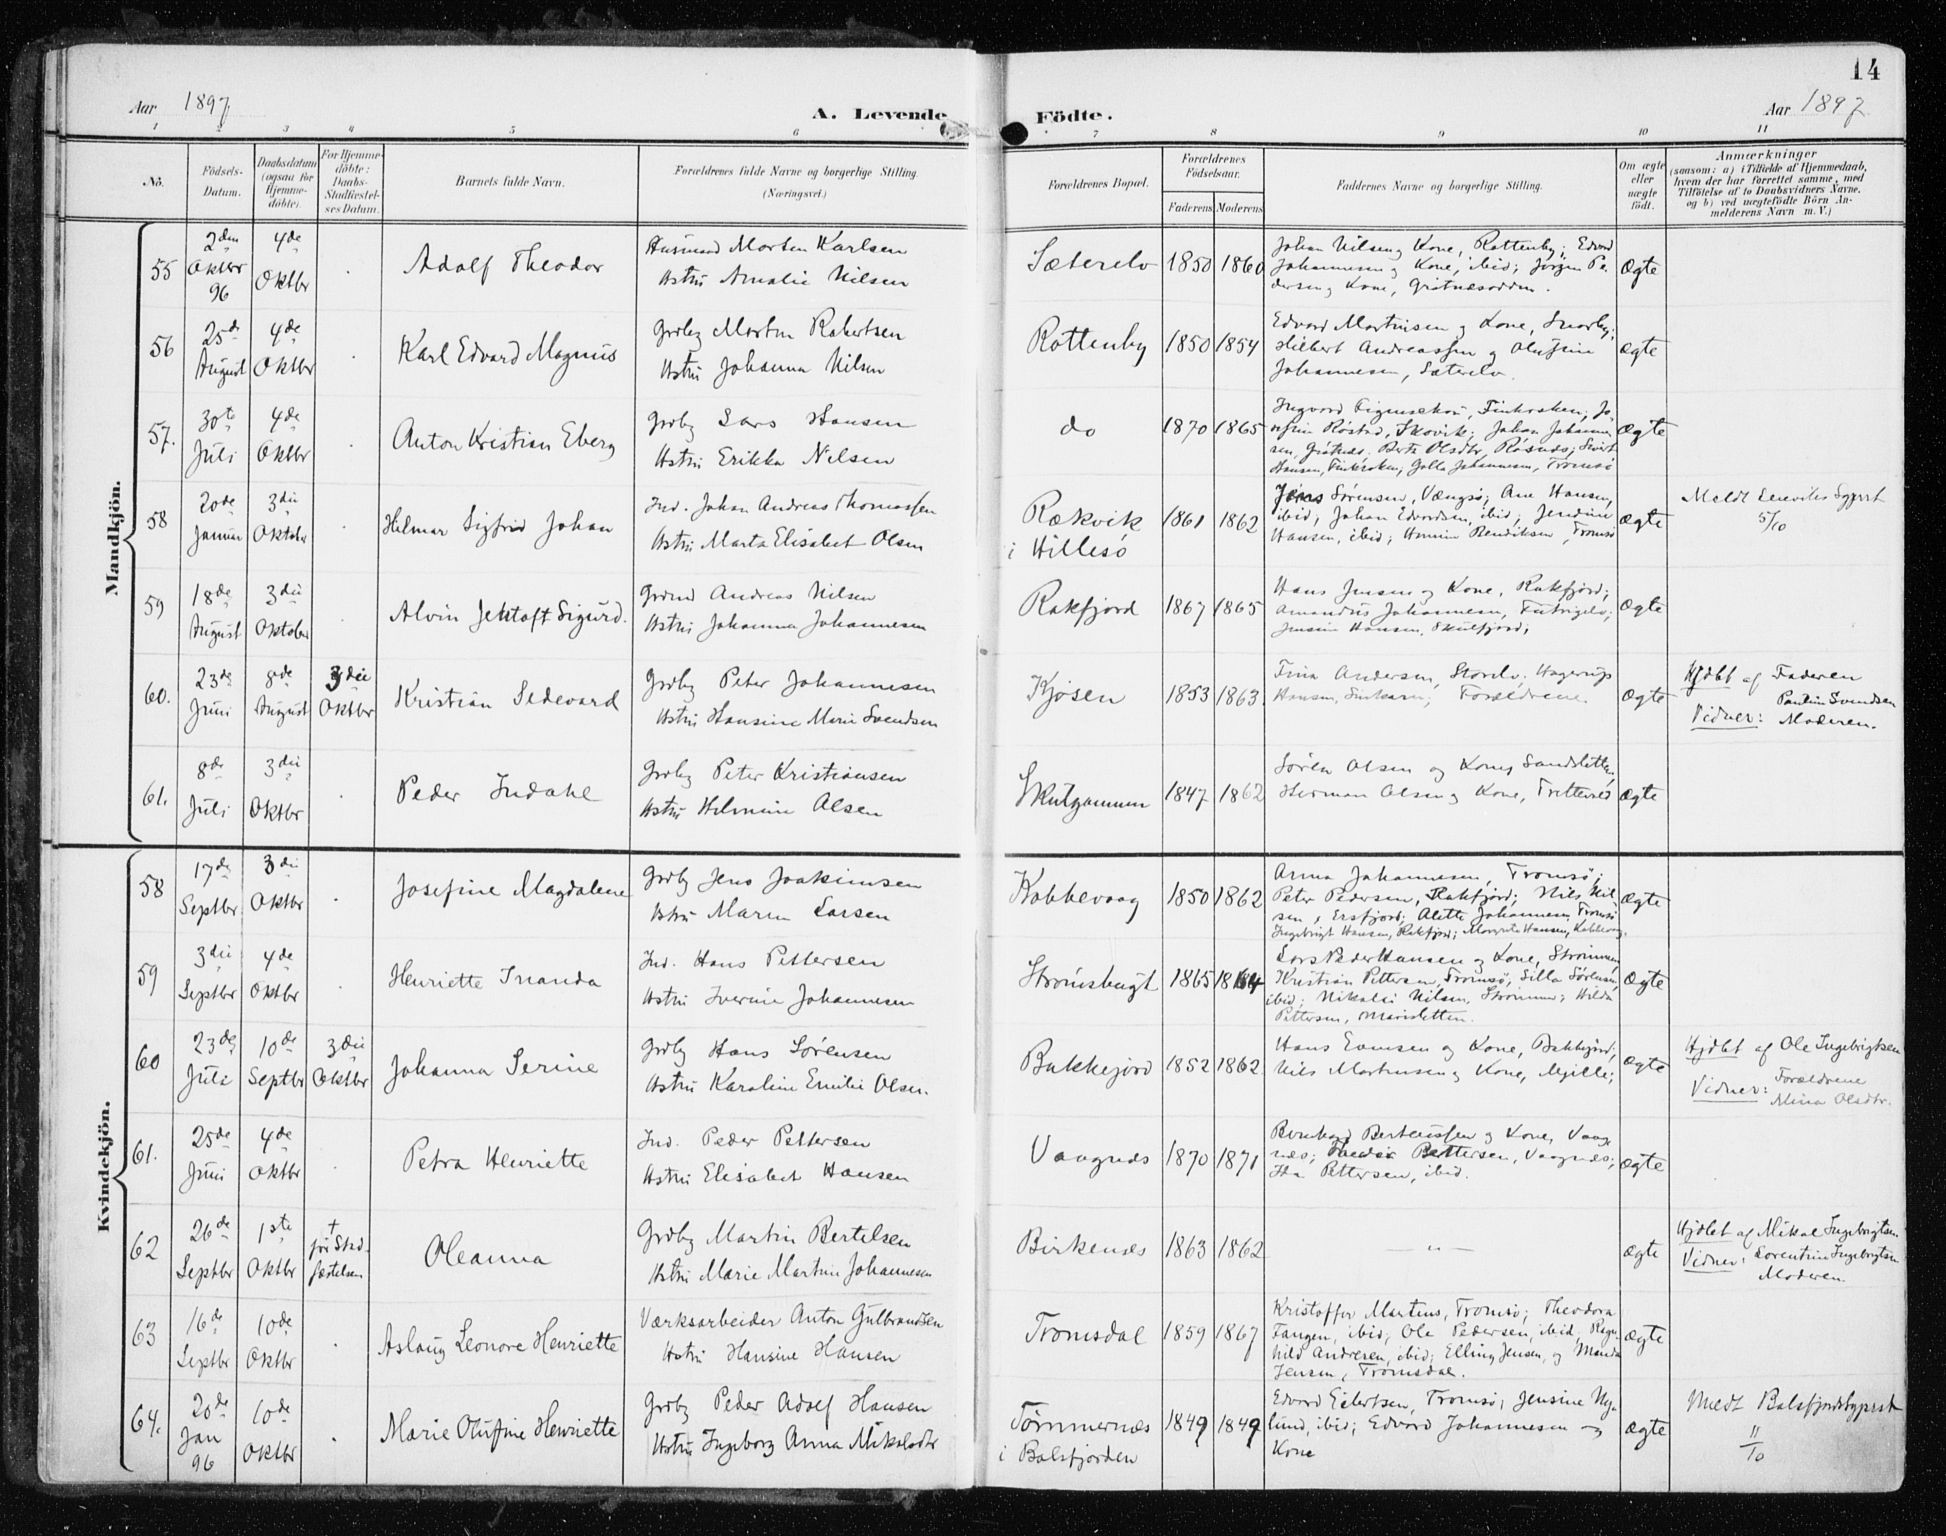 14
Aar 1897
A. Levende
Födte.
Aar 1897
1 2 3 4 5 6 7 8 9 10 11
No.
Födsels-
Datum.
Daabsdatum
(ogsaa for
Hjemme-
döbte).
For Hjemme-
döbte:
Daabs-
Stadfæstel-
ses Datum.
Barnets fulde Navn.
Forældrenes fulde Navne og borgerlige Stilling.
(Næringsvei.)
Forældrenes Bopæl.
Forældrenes
Födselsaar.
Faderens Moderens
Faddernes Navne og borgerlige Stilling.
Om ægte
eller
uægte
födt.
Anmærkninger
(saasom: a) i Tilfælde af Hjemmedaab,
hvem der har forrettet samme, med
Tilföielse af to Daabsvidners Navne,
og b) ved uægtefödte Börn An-
melderens Navn m. V.)
Mandkjön.
55
2den
Oktbr
96
4de
Oktbr
Adolf Theodor
Husmand Morten Karlsen
Hstru Amalie Nilsen
Sæterelv
1850 1860
Johan Nilsen og Kone, Rottenby; Edvard
Johannesen og Kone, ibid; Jørgen Pe-
dersen og Kone, Grøtnæsodden.
Ægte
56
25de
August
4de
Oktbr
Karl Edvard Magnus
Grdbg Martin Robertsen
Hstru Johanna Nilsen
Rottenby
1850 1854
Edvard Martinsen og Kone, Snarby;
Hilbert Andreassen og Olufine
Johannesen, Sæterelv.
Ægte
57.
30te
Juli
4de
Oktbr
Anton Kristian Eberg
Grdbg Lars Hansen
Hstru Erikka Nilsen
do
1870 1865
Skovik; Johan Johanne-
sen, Grøtnæs; Berte Olsdtr, Røsnæs; Sivert
Hansen, Finkroken; Johannesen, Tromsø
Ægte
58
20de
Januar
3die
Oktober
Hilmar Sigfrid Johan
Ind. Johan Andreas Thomassen
Hstru Marta Elisabet Olsen
Rækvik
i Hillesö
1861 1862
Jens Sørensen, Vængsø; Ane Hansen,
ibid; Johan Edvardsen, ibid; Jendine
Hansen, ibid; Hendriksen, Tromsø
Ægte
Meldt Lenviks Sgprst
5/10
59
18de
August
3die
Oktober
Alvin Jektoft Sigurd.
Grdmd Andreas Nilsen
Hstru Johanna Johannesen
Rakfjord
1867 1865
Hans Jensen og Kone, Rakfjord;
Amandus Johannesen, Futrigelv;
Jensine Hansen, Skulfjord;
Ægte
60.
23de
Juni
8de
August
3die
Oktbr
Kristian Sedevard
Grdbg Peter Johannesen
Hstru Hansine Marie Svendsen
Kjosen
1853 1863
Trina Andersen, Storelv; Hagerup
Hansen, Forældrene.
Ægte
Hjdbt af Faderen
Pauline Svendsen
Vidner: Moderen.
61.
8de
Juli
3die
Oktbr
Peder Indahl
Grdbg Peter Kristiansen
Hstru Hilmine Olsen
Skulgammen
1847 1862
Søren Olsen og Kone, Sandsletten,
Herman Olsen og Kone, Frettenes
Ægte
Kvindekjön.
58
17de
Septbr
3die
Oktbr
Josefine Magdalene
Grdbg Jens Joakimsen
Hstru Maren Larsen
Kobbevaag
1850 1862
Anna Johannesen, Tromsø;
Peter Pedersen, Rakfjord; Nils Nil-
sen, Ersfjord; Alette Johannesen, Tromsø
Ingebrigt Hansen, Rakfjord; Margrete Hansen, Kobbevaag.
Ægte
59
3die
Septbr
4de
Oktbr
Henriette Inanda
Ind. Hans Pettersen
Hstru Iverine Johannesen
Strømsbugt
1865 1864
Lars Peder Hansen og Kone, Strømmen
Kristian Pettersen, Tromsø; Silla Sørensen,
ibid; Nikolai Nilsen, Strømmen; Hilda
Pettersen, Marisletten.
Ægte
60
23de
Juli
10de
Septbr
3die
Oktbr
Johanna Serine
Grdbg Hans Sørensen
Hstru Karoline Emilie Olsen.
Bakkejord
1852 1862
Hans Evensen og Kone, Bakkejord;
Nils Martinsen og Kone, Mjelle;
Ægte
Hjdbt af Ole Ingebrigtsen
Vidner: Forældrene
Mina Olsdtr.
61.
25de
Juni
4de
Oktbr
Petra Henriette
Ind. Peder Pettersen
Hstru Elisabet Hansen
Vaagnæs
1870 1871
Bernhard Berteussen og Kone, Vaag-
næs; Theodor Pettersen, Vaagnæs;
Ida Pettersen, ibid.
Ægte
62
26de
Septbr
1ste
Oktbr
+
før Stad-
fæstelsen
Oleanna
Grdbg Martin Bertelsen
Hstru Marie Martine Johannesen
Birkenæs
1863 1862
— " —
Ægte
Hjdbt af Mikal Ingebrigtsen
Vidner: Lorentine Ingebrigtsen
Moderen.
63
16de
Septbr
10de
Oktbr
Aslaug Leonore Henriette
Værksarbeider Anton Gulbrandsen
Hstru Hansine Hansen
Tromsdal
1859 1867
Kristoffer Martens, Tromsø; Theodora
Fangen, ibid; Ole Pedersen, ibid, Ragn-
hild Andresen, ibid; Elling Jensen, og Manda
Jensen, Tromsdal.
Ægte
64.
20de
Jan
96
10de
Oktbr
Marie Olufine Henriette
Grdbg Peder Adolf Hansen
Hstru Ingeborg Anna Mikalsdtr
Tømmernæs
i Balsfjorden
1849 1849
Edvard Eilertsen, Tromsø; Jensine Ny-
lund, ibid; Edvard Johannesen og
Kone
Ægte
Meldt Balsfjords sgprst
11/10